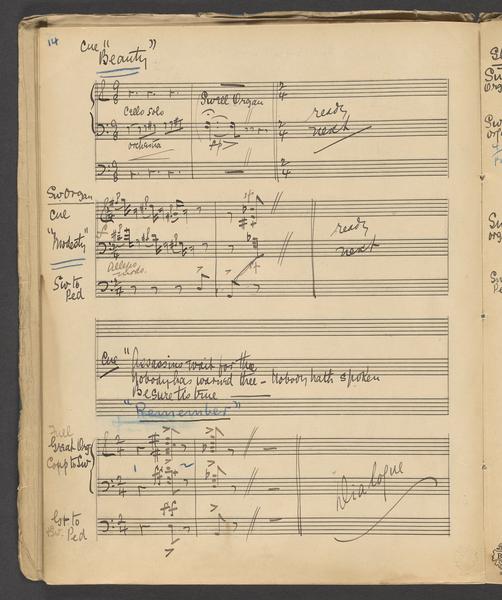 14
cue "Beauty"
Cello solo
orchestra
Swell Organ
pp>
ready
next
Sw Organ
cue
"Modesty"
Sw to
Ped
Allegro
mod.
ff
ready
next
cue "Assassins wait for thee
Nobody has warned thee - Nobody hath spoken
Be sure tis true
"Remember"
Full
Great Org
Coup to Sw
Gt to
Sw. Ped
ff
Dialogue